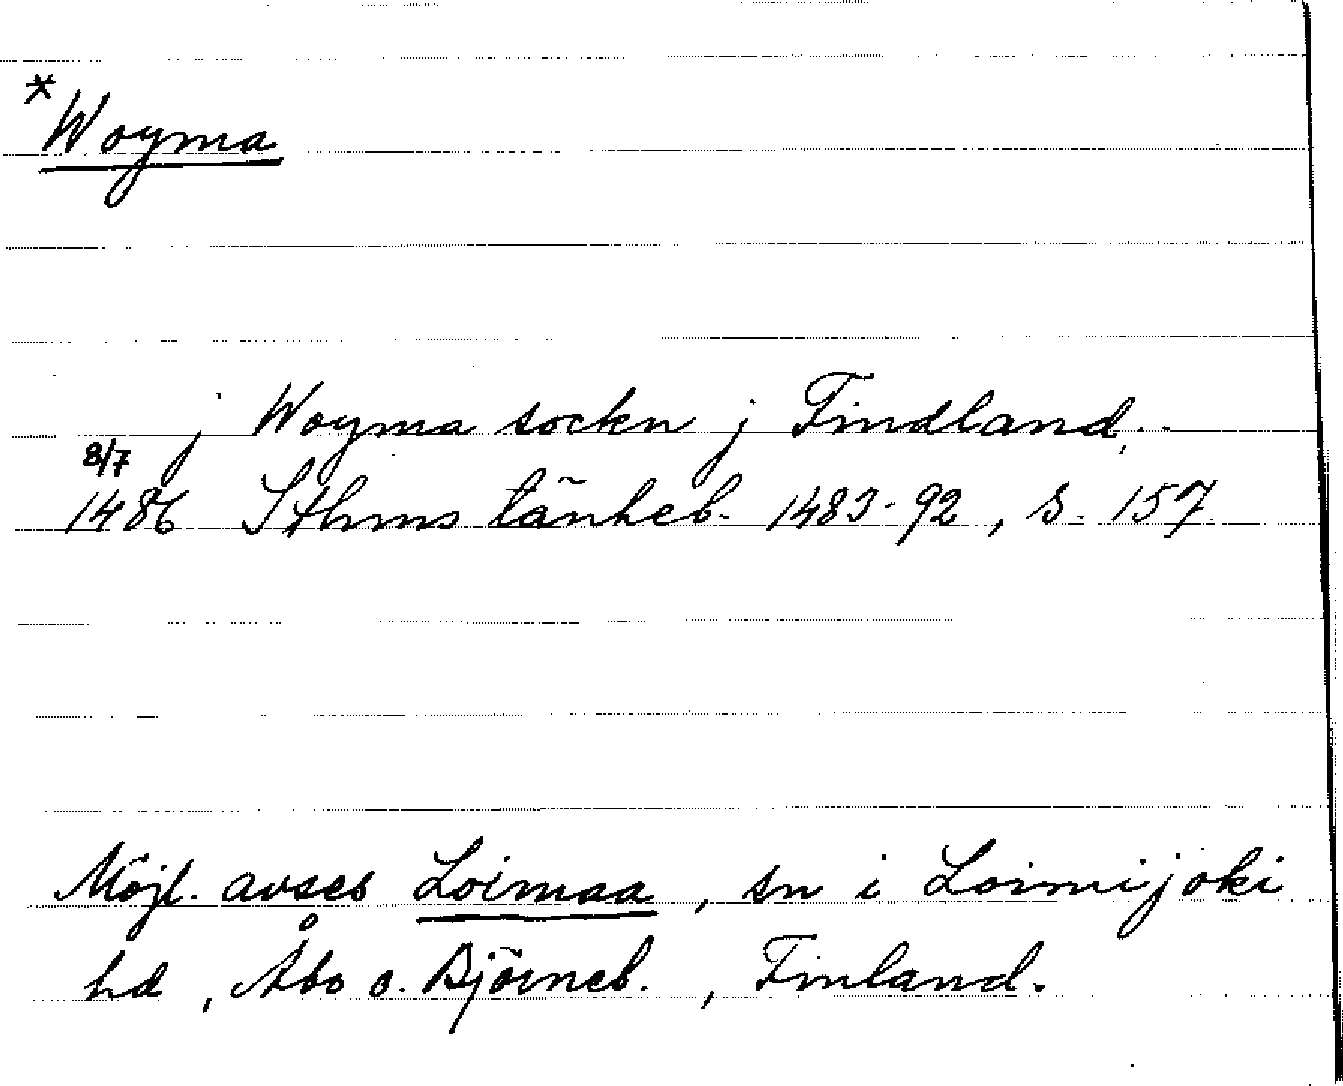 *Woyma
j Woyma sockn j Findland.
8/7
1486 Sthms tänkeb. 1483-92, s. 157
Möjl. avses Loimaa, sn i Loimijoki
hd, Åbo o. Björneb., Finland.